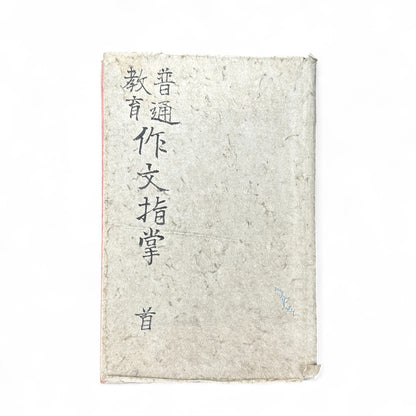 普通
教育
作文指掌 首